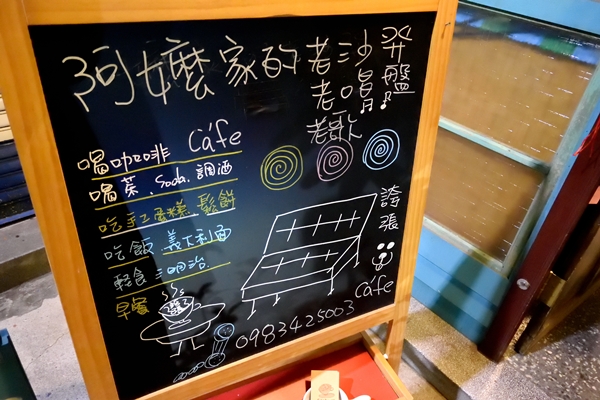 阿嬤家的
老沙發
老唱盤
老歌
喝咖啡 Cáfe
喝茶、Soda、調酒
吃手工蛋糕、鬆餅
吃飯 義大利麵
輕食三明治、
早餐
誇張
cáfe
0983425003